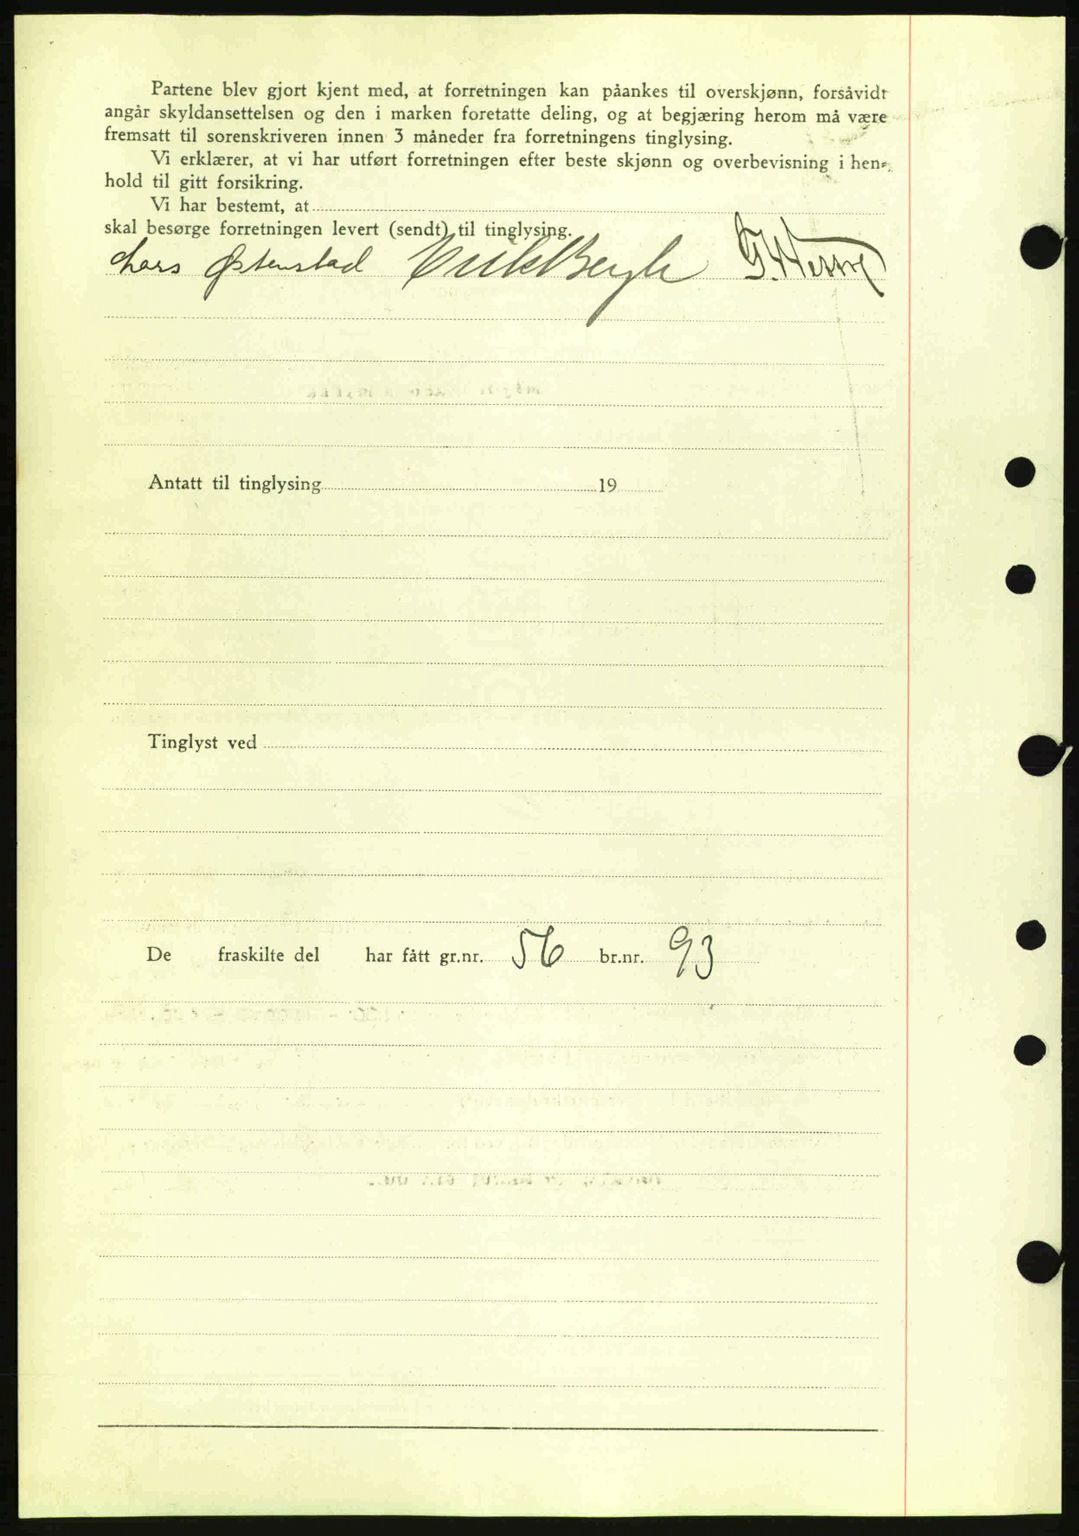 Partene blev gjort kjent med, at forretningen kan påankes til overskjønn, forsåvidt
angår skyldansettelsen og den i marken foretatte deling, og at begjæring herom må være
fremsatt til sorenskriveren innen 3 måneder fra forretningens tinglysing.
Vi erklærer, at vi har utført forretningen efter beste skjønn og overbevisning i hen-
hold til gitt forsikring.
Vi har bestemt, at
skal besørge forretningen levert (sendt) til tinglysing.
Lars Østenstad
Antatt til tinglysing 19
Tinglyst ved
De fraskilte del har fått gr.nr. 56 br.nr. 93